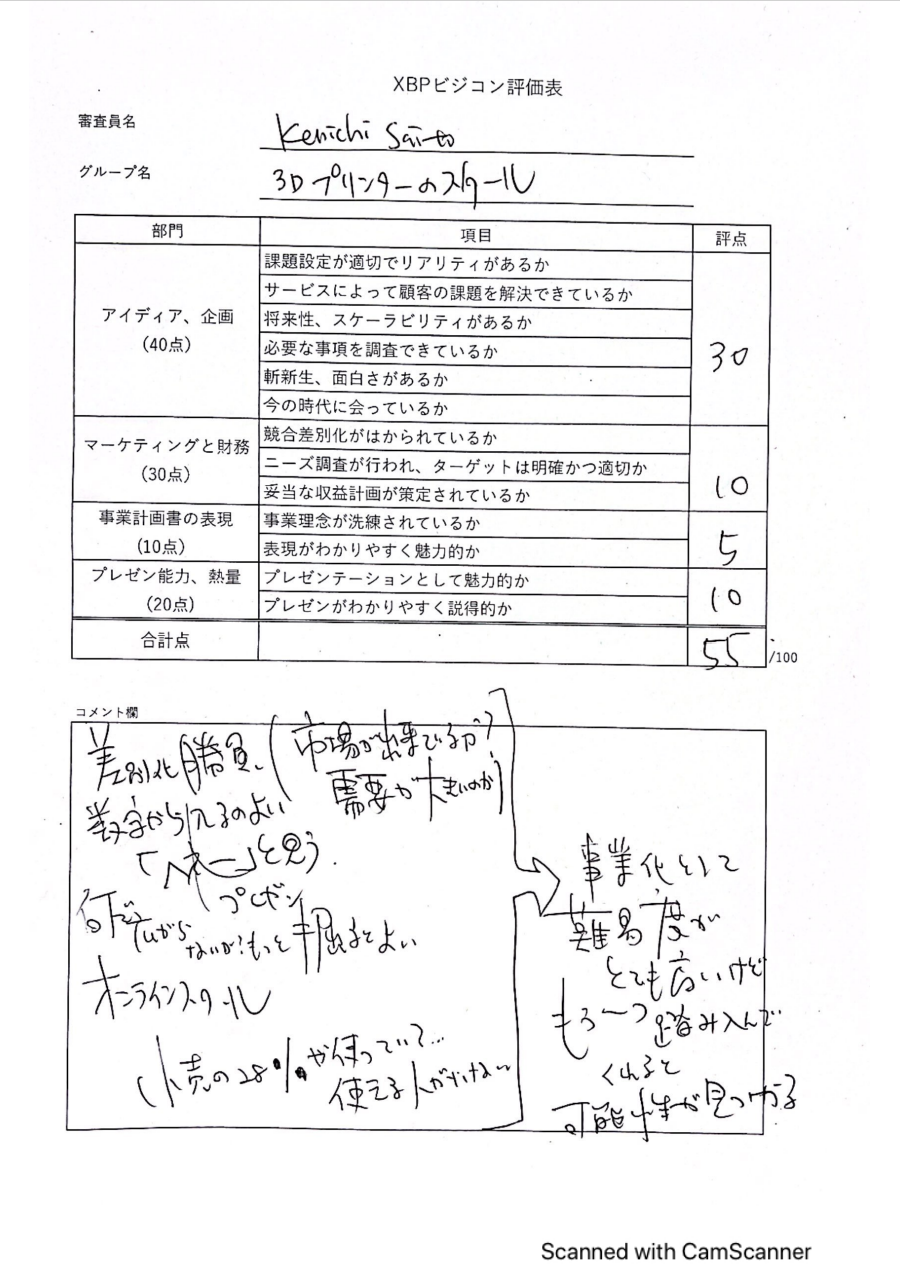 XBPビジコン評価表
審査員名
Kenichi Saito
グループ名
3Dプリンターのスクール
部門 項目 評点
アイディア、企画
(40点)
課題設定が適切でリアリティがあるか
サービスによって顧客の課題を解決できているか
将来性、スケーラビリティがあるか
必要な事項を調査できているか
斬新生、面白さがあるか
今の時代に会っているか
30
マーケティングと財務
(30点)
競合差別化がはかられているか
ニーズ調査が行われ、ターゲットは明確かつ適切か
妥当な収益計画が策定されているか
10
事業計画書の表現
(10点)
事業理念が洗練されているか
表現がわかりやすく魅力的か
5
プレゼン能力、熱量
(20点)
プレゼンテーションとして魅力的か
プレゼンがわかりやすく説得的か
10
合計点 55 /100
コメント欄
差別化勝負、
数字から入るのよい
と思う.
プレゼン
(市場が出来てるか?
需要が大きいのか)
ないが?もっと 出るとよい
オンラインスクール
小売の28%が使っていて...
使える人が
事業化として
難易度が
とても高いけど
もう一つ踏み込んで
くれると
可能性が見つかる
Scanned with CamScanner